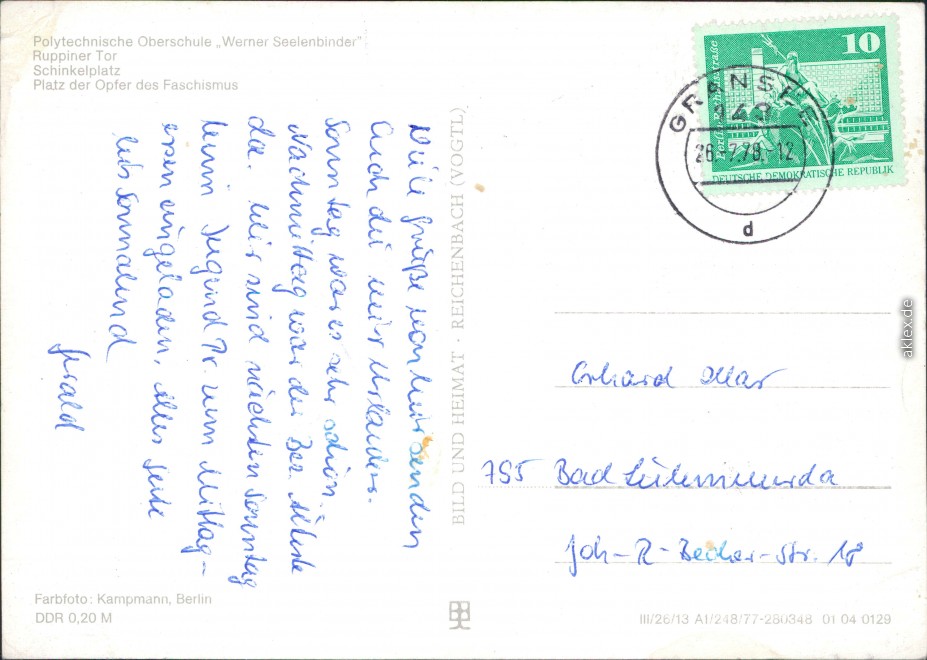 Polytechnische Oberschule „Werner Seelenbinder"
Ruppiner Tor
Schinkelplatz
Platz der Opfer des Faschismus
Viele Grüße von hier senden
Auch die
Sonntag war es sehr schön.
Nachmittag war die Bez. Älteste
da. Wir sind nächsten Sonntag
beim Jugend Pr. zum Mittag-
essen eingeladen, alles Gute
bis Sonnabend
Gerald
BILD UND HEIMAT · REICHENBACH (VOGTL)
10
DEUTSCHE DEMOKRATISCHE REPUBLIK
GRANSEE
143
26.-7.78.-12
d
Erhard
795 Bad Liebenwerda
Joh-R-Becher-Str. 18
Farbfoto: Kampmann, Berlin
DDR 0,20 M
III/26/13 A1/248/77-280348 01 04 0129
aklex.de